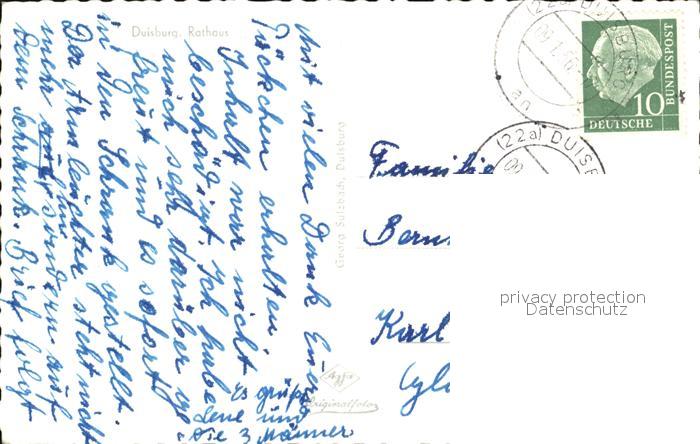 Duisburg, Rathaus
Mit vielen Dank Euer
Päckchen erhalten.
Inhalt war nicht
beschädigt. Ich habe
mich sehr darüber ge-
freut und es sofort
in den Schrank gestellt.
Der Armleuchter steht nicht
mehr sondern auf
dem Schrank. Brief folgt
Es grüßt
Lene und
die 3 Männer
Georg Sulzbach, Duisburg
Agfa
Originalfoto
(22a) DUISBURG
10
DEUTSCHE
BUNDESPOST
(22a) DUISB
Familie
Bern
Karl
privacy protection
Datenschutz